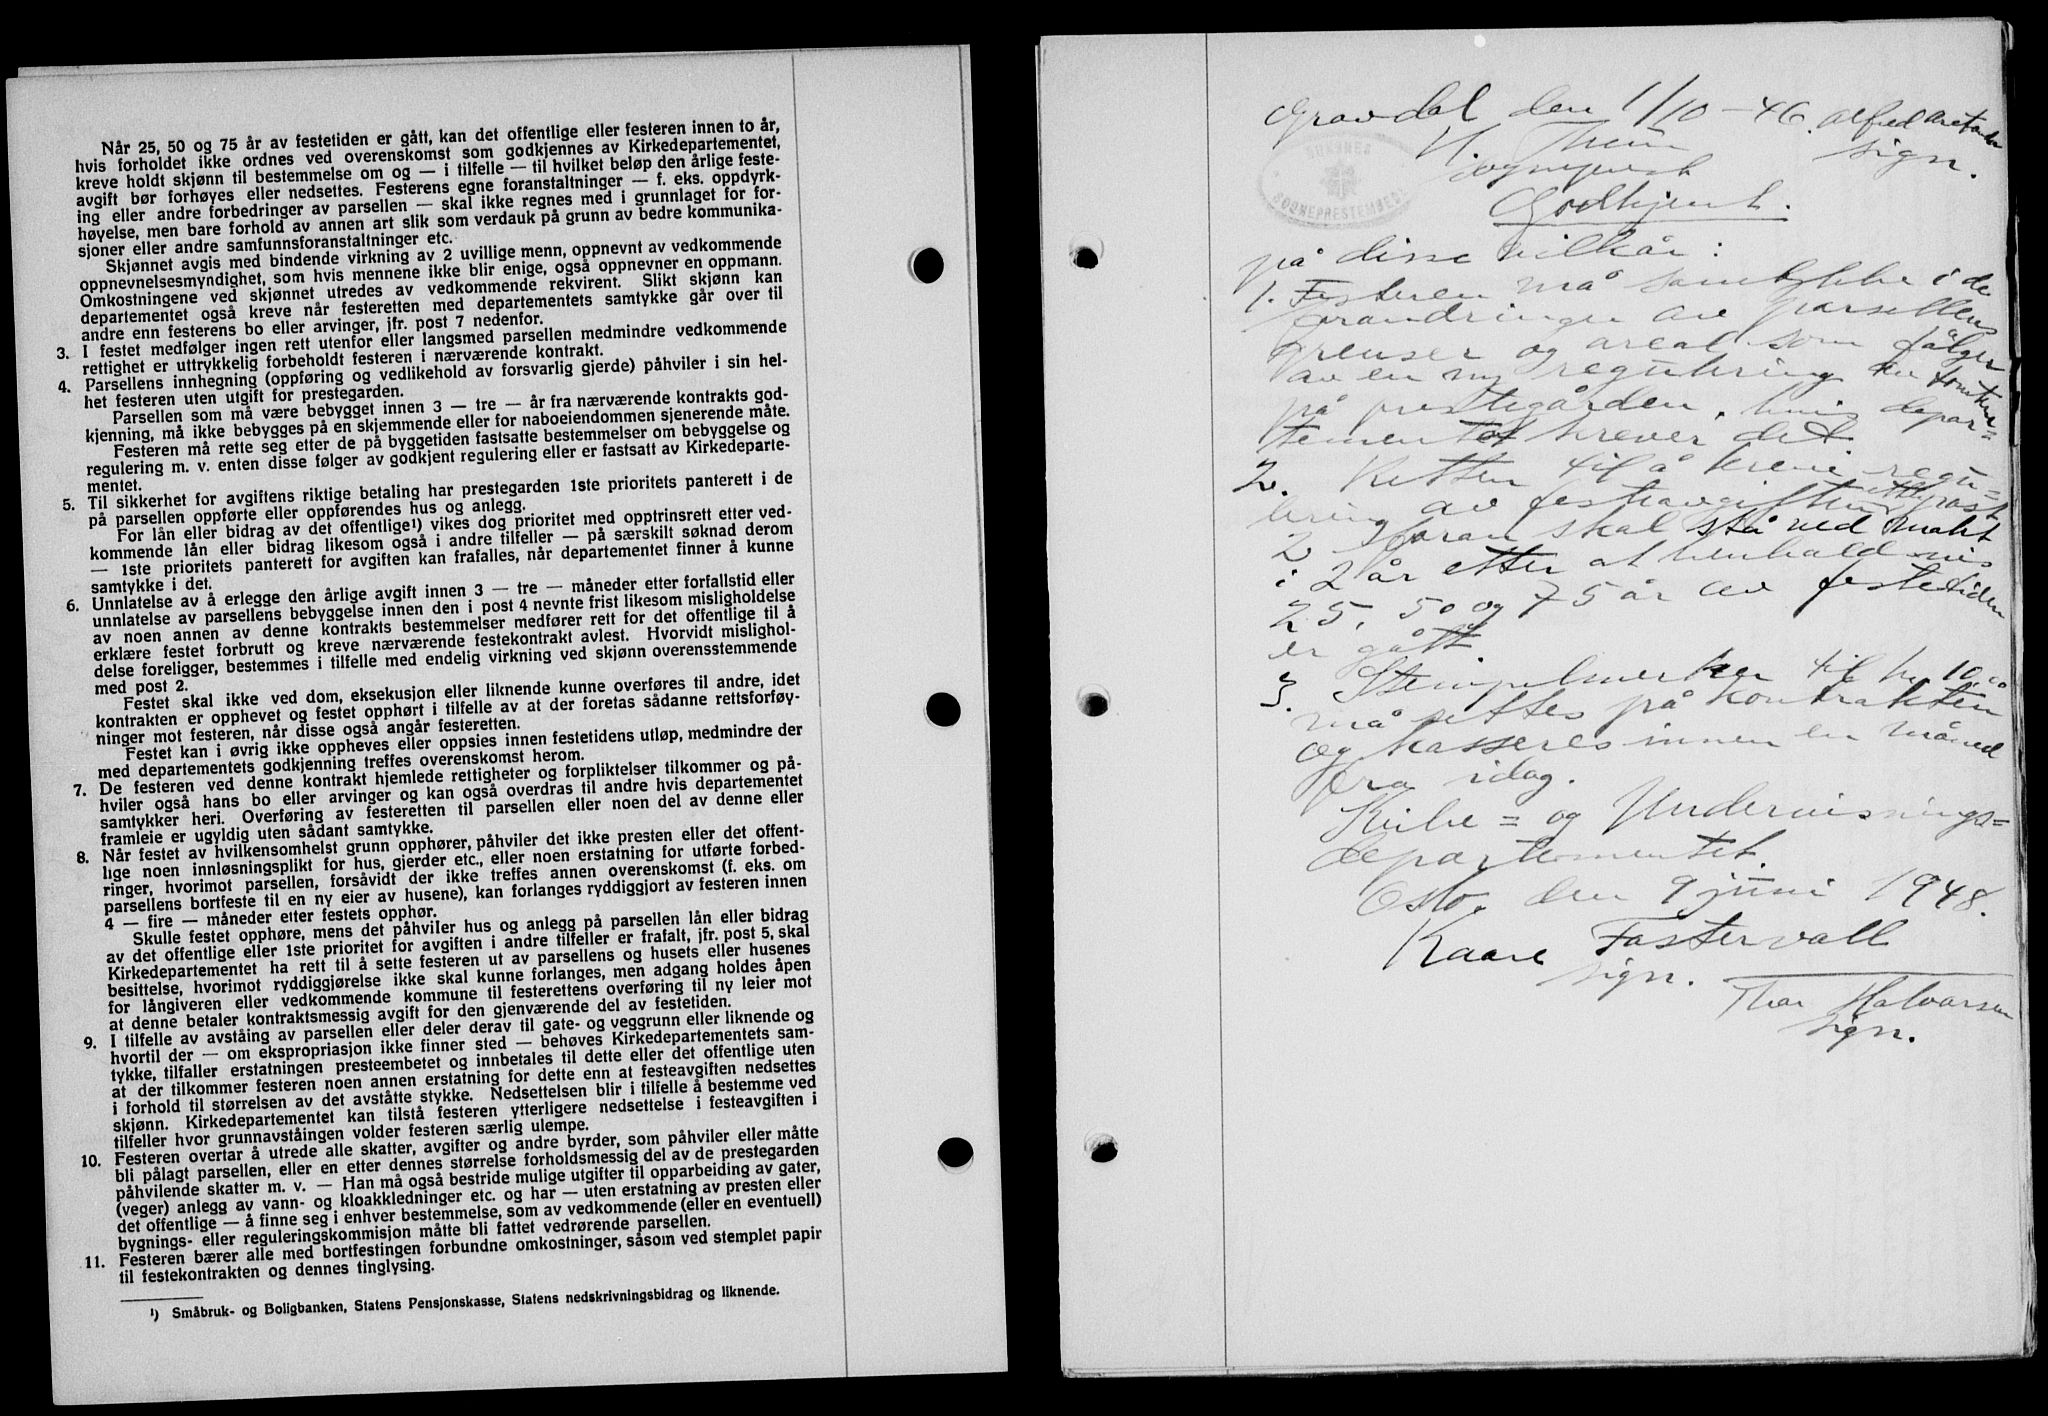 Når 25, 50 og 75 år av festetiden er gått, kan det offentlige eller festeren innen to år,
hvis forholdet ikke ordnes ved overenskomst som godkjennes av Kirkedepartementet,
kreve holdt skjønn til bestemmelse om og — i tilfelle — til hvilket beløp den årlige feste-
avgift bør forhøyes eller nedsettes. Festerens egne foranstaltninger — f. eks. oppdyrk-
ing eller andre forbedringer av parsellen — skal ikke regnes med i grunnlaget for for-
høyelse, men bare forhold av annen art slik som verdauk på grunn av bedre kommunika-
sjoner eller andre samfunnsforanstaltninger etc.
Skjønnet avgis med bindende virkning av 2 uvillige menn, oppnevnt av vedkommende
oppnevnelsesmyndighet, som hvis mennene ikke blir enige, også oppnevner en oppmann.
Omkostningene ved skjønnet utredes av vedkommende rekvirent. Slikt skjønn kan
departementet også kreve når festeretten med departementets samtykke går over til
andre enn festerens bo eller arvinger, jfr. post 7 nedenfor.
3. I festet medfølger ingen rett utenfor eller langsmed parsellen medmindre vedkommende
rettighet er uttrykkelig forbeholdt festeren i nærværende kontrakt.
4. Parsellens innhegning (oppføring og vedlikehold av forsvarlig gjerde) påhviler i sin hel-
het festeren uten utgift for prestegarden.
Parsellen som må være bebygget innen 3 — tre — år fra nærværende kontrakts god-
kjenning, må ikke bebygges på en skjemmende eller for naboeiendommen sjenerende måte.
Festeren må rette seg etter de på byggetiden fastsatte bestemmelser om bebyggelse og
regulering m. v. enten disse følger av godkjent regulering eller er fastsatt av Kirkedeparte-
mentet.
5. Til sikkerhet for avgiftens riktige betaling har prestegarden 1ste prioritets panterett i de
på parsellen oppførte eller oppførendes hus og anlegg.
For lån eller bidrag av det offentlige¹) vikes dog prioritet med opptrinsrett etter ved-
kommende lån eller bidrag likesom også i andre tilfeller — på særskilt søknad derom
— 1ste prioritets panterett for avgiften kan frafalles, når departementet finner å kunne
samtykke i det.
6. Unnlatelse av å erlegge den årlige avgift innen 3 — tre — måneder etter forfallstid eller
unnlatelse av parsellens bebyggelse innen den i post 4 nevnte frist likesom misligholdelse
av noen annen av denne kontrakts bestemmelser medfører rett for det offentlige til å
erklære festet forbrutt og kreve nærværende festekontrakt avlest. Hvorvidt mislighol-
delse foreligger, bestemmes i tilfelle med endelig virkning ved skjønn overensstemmende
med post 2.
Festet skal ikke ved dom, eksekusjon eller liknende kunne overføres til andre, idet
kontrakten er opphevet og festet opphørt i tilfelle av at der foretas sådanne rettsforføy-
ninger mot festeren, når disse også angår festeretten.
Festet kan i øvrig ikke oppheves eller oppsies innen festetidens utløp, medmindre der
med departementets godkjenning treffes overenskomst herom.
7. De festeren ved denne kontrakt hjemlede rettigheter og forpliktelser tilkommer og på-
hviler også hans bo eller arvinger og kan også overdras til andre hvis departementet
samtykker heri. Overføring av festeretten til parsellen eller noen del av denne eller
framleie er ugyldig uten sådant samtykke.
8. Når festet av hvilkensomhelst grunn opphører, påhviler det ikke presten eller det offent-
lige noen innløsningsplikt for hus, gjerder etc., eller noen erstatning for utførte forbed-
ringer, hvorimot parsellen, forsåvidt der ikke treffes annen overenskomst (f. eks. om
parsellens bortfeste til en ny eier av husene), kan forlanges ryddiggjort av festeren innen
4 — fire — måneder etter festets opphør.
Skulle festet opphøre, mens det påhviler hus og anlegg på parsellen lån eller bidrag
av det offentlige eller 1ste prioritet for avgiften i andre tilfeller er frafalt, jfr. post 5, skal
Kirkedepartementet ha rett til å sette festeren ut av parsellens og husets eller husenes
besittelse, hvorimot ryddiggjørelse ikke skal kunne forlanges, men adgang holdes åpen
for långiveren eller vedkommende kommune til festerettens overføring til ny leier mot
at denne betaler kontraktsmessig avgift for den gjenværende del av festetiden.
9. I tilfelle av avståing av parsellen eller deler derav til gate- og veggrunn eller liknende og
hvortil der — om ekspropriasjon ikke finner sted — behøves Kirkedepartementets sam-
tykke, tilfaller erstatningen presteembetet og innbetales til dette eller det offentlige uten
at der tilkommer festeren noen annen erstatning for dette enn at festeavgiften nedsettes
i forhold til størrelsen av det avståtte stykke. Nedsettelsen blir i tilfelle å bestemme ved
skjønn. Kirkedepartementet kan tilstå festeren ytterligere nedsettelse i festeavgiften i
tilfeller hvor grunnavståingen volder festeren særlig ulempe.
10. Festeren overtar å utrede alle skatter, avgifter og andre byrder, som påhviler eller måtte
bli pålagt parsellen, eller en etter dennes størrelse forholdsmessig del av de prestegarden
påhvilende skatter m. v. — Han må også bestride mulige utgifter til opparbeiding av gater,
(veger) anlegg av vann- og kloakkledninger etc. og har — uten erstatning av presten eller
det offentlige — å finne seg i enhver bestemmelse, som av vedkommende (eller en eventuell)
bygnings- eller reguleringskommisjon måtte bli fattet vedrørende parsellen.
11. Festeren bærer alle med bortfestingen forbundne omkostninger, såsom ved stemplet papir
til festekontrakten og dennes tinglysing.
¹) Småbruk- og Boligbanken, Statens Pensjonskasse, Statens nedskrivningsbidrag og liknende.
Gravdal den 1/10 - 46. Alfred
sign.
sogneprest
SOGNEPRESTEMBEDE
Godkjent.
på disse vilkår:
1. Festeren må samtykke i de
forandringer av parsellens
grenser og areal som følger
av en ny regulering av tomtene
på prestegården, hvis depar=
tementet krever det
2. Retten til å kreve regu=
lering av festeavgiften etter post
2 foran skal stå ved makt
i 2 år etter at henhold=vis
25, 50 og 75 år av festetiden
er gått
3. Stempelmerker til kr. 10,00
må settes på kontrakten
og kasseres innen en måned
fra idag.
Kirke= og Undervisnings=
departementet.
Oslo, den 9 juni 1948.
Kaare Fostervall
sign.
Thor Halvorsen
sign.